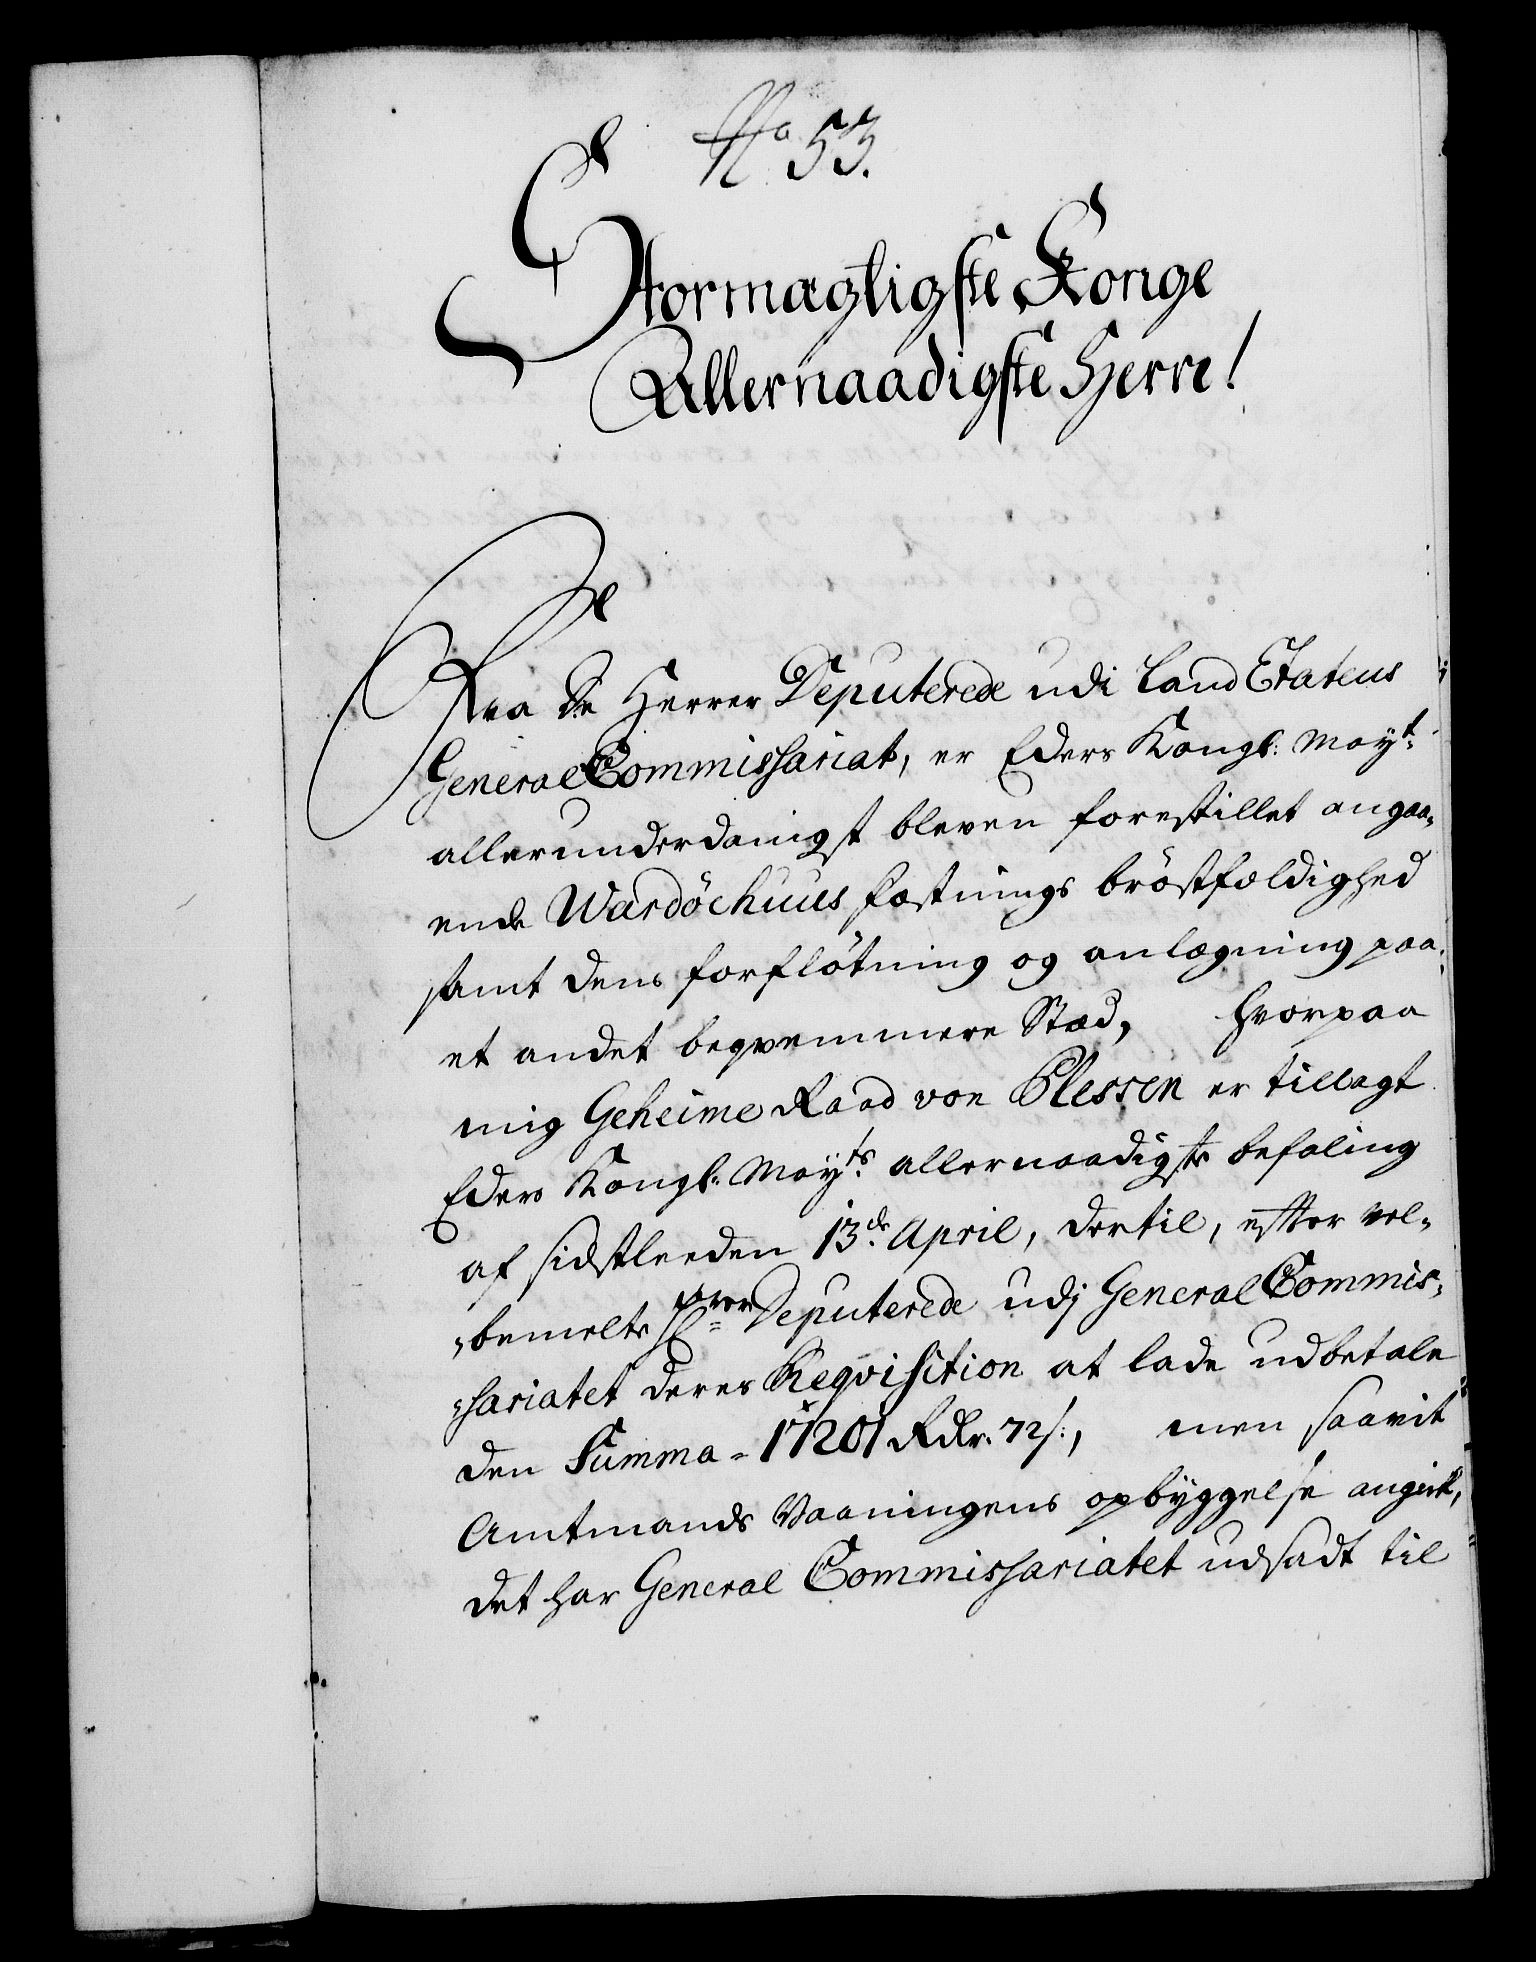 No 53.
Stormægtigste Konge
Allernaadigste Herre!
Fra De Herrer Deputerede udi Land Etatens
General Commissariat, er Eders Kongl: Mayt:
allerunderdanigst bleven forestillet angaa-
ende Wardöehuus Fæstnings bröstfældighed
samt dens forflötning og anlægning paa
et andet beqvemmere Stæd, hvorpaa
mig Geheime Raad von Plessen er tillagt
Eders Kongl: Mayts: allernaadigste befaling
af sidstleeden 13de April, dertil, efter vel-
-bemelte Hrer Deputerede udj General Commis-
-sariatet deres Reqvisition at lade udbetale
den Summa = 17201 Rdr. 72 s:, men saavit
Amtmands Vaaningens opbyggelse angik,
det har General Commissariatet udsadt til